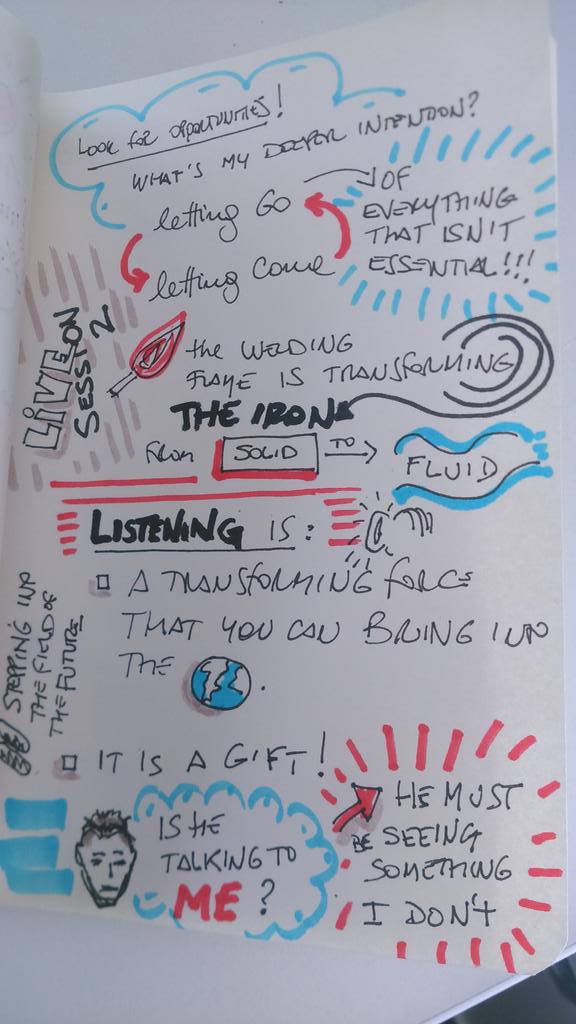 LOOK FOR OPPORTUNITIES!
WHAT'S MY DEEPER INTENTION?
letting GO
OF
EVERYTHING
THAT ISN'T
ESSENTIAL!!!
letting Come
LIVE
SESSION
2
the WELDING
FLAME IS TRANSFORMING
THE IRON
FROM SOLID TO FLUID
LISTENING IS:
A TRANSFORMING FORCE
THAT YOU CAN BRING INTO
THE .
STEPPING INTO
THE FIELD OF
THE FUTURE
IT IS A GIFT!
IS HE
TALKING TO
ME?
HE MUST
BE SEEING
SOMETHING
I DON'T